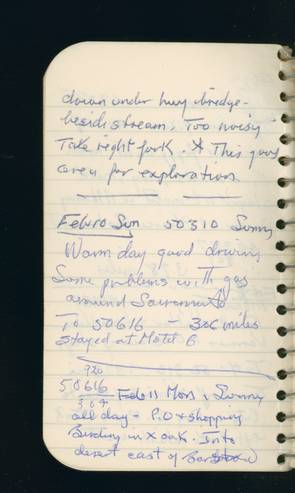 down under hwy bridge-
beside stream. Too noisy
Take right fork. * This good
area for exploration
Feb 10 Sun 50310 Sunny
Warm day good driving
Some problems with gas
around Sacramento
To 50616 - 306 miles
Stayed at Motel 6
920
50616
307 Feb 11 Mon, Sunny
all day - P.O & shopping
Birding in oak. Into
desert east of Barstow